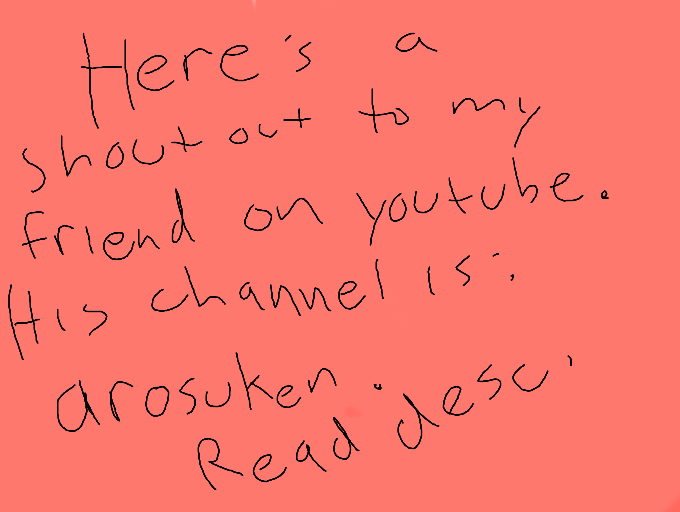 Here's a
shout out to my
friend on youtube.
His channel is:
arosuken.
Read desc.